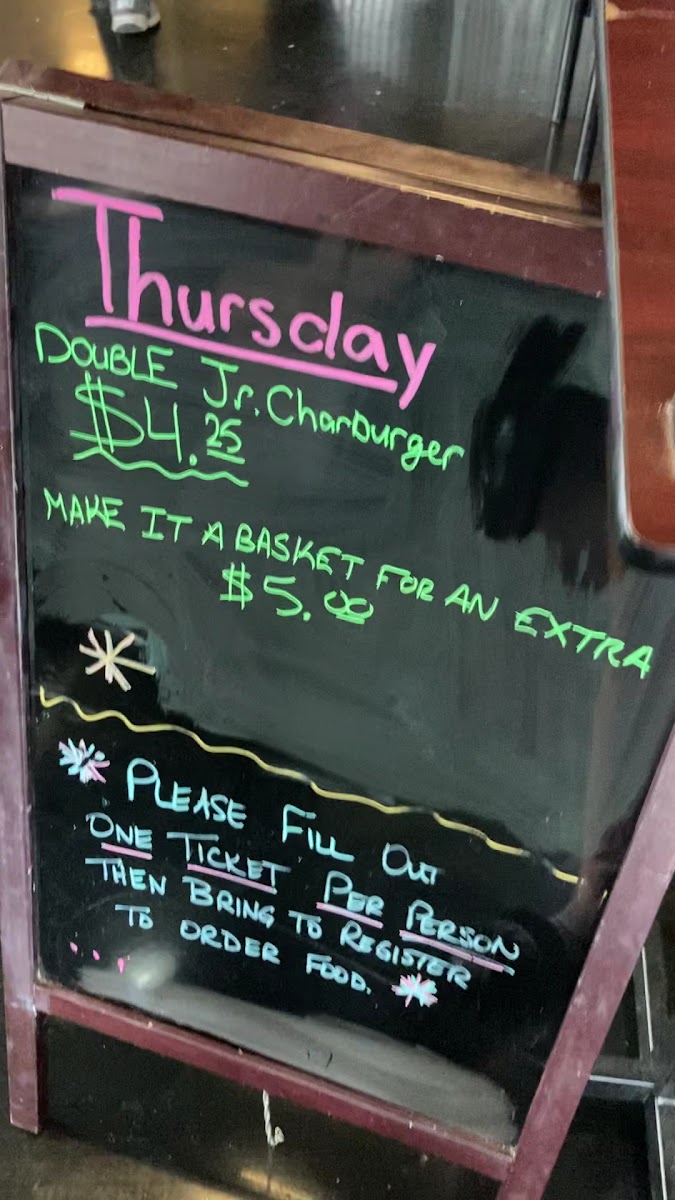 Thursday
DOUBLE Jr. Charburger
$4.25
MAKE IT A BASKET FOR AN EXTRA
$5.00
PLEASE FILL OUT
ONE TICKET PER PERSON
THEN BRING TO REGISTER
TO ORDER FOOD.